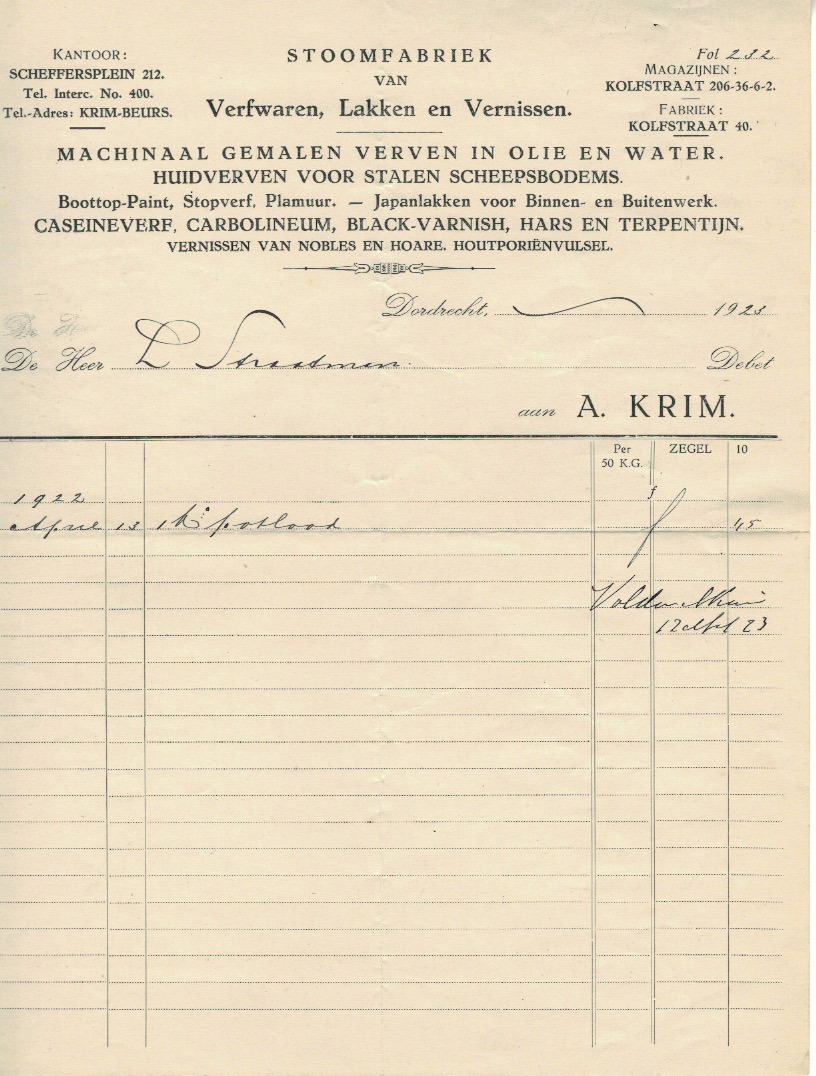 KANTOOR:
SCHEFFERSPLEIN 212.
Tel. Interc. No. 400.
Tel.-Adres: KRIM-BEURS.
STOOMFABRIEK
VAN
Verfwaren, Lakken en Vernissen.
Fol 232
MAGAZIJNEN:
KOLFSTRAAT 206-36-6-2.
FABRIEK:
KOLFSTRAAT 40.
MACHINAAL GEMALEN VERVEN IN OLIE EN WATER.
HUIDVERVEN VOOR STALEN SCHEEPSBODEMS.
Boottop-Paint, Stopverf, Plamuur. — Japanlakken voor Binnen- en Buitenwerk.
CASEINEVERF, CARBOLINEUM, BLACK-VARNISH, HARS EN TERPENTIJN.
VERNISSEN VAN NOBLES EN HOARE. HOUTPORIËNVULSEL.
Dordrecht, 1923
De Heer L Straatman Debet
aan A. KRIM.
Per 50 K.G. ZEGEL 10
f
1922
April 13 1 Ko potlood 45
Voldaan
12 23